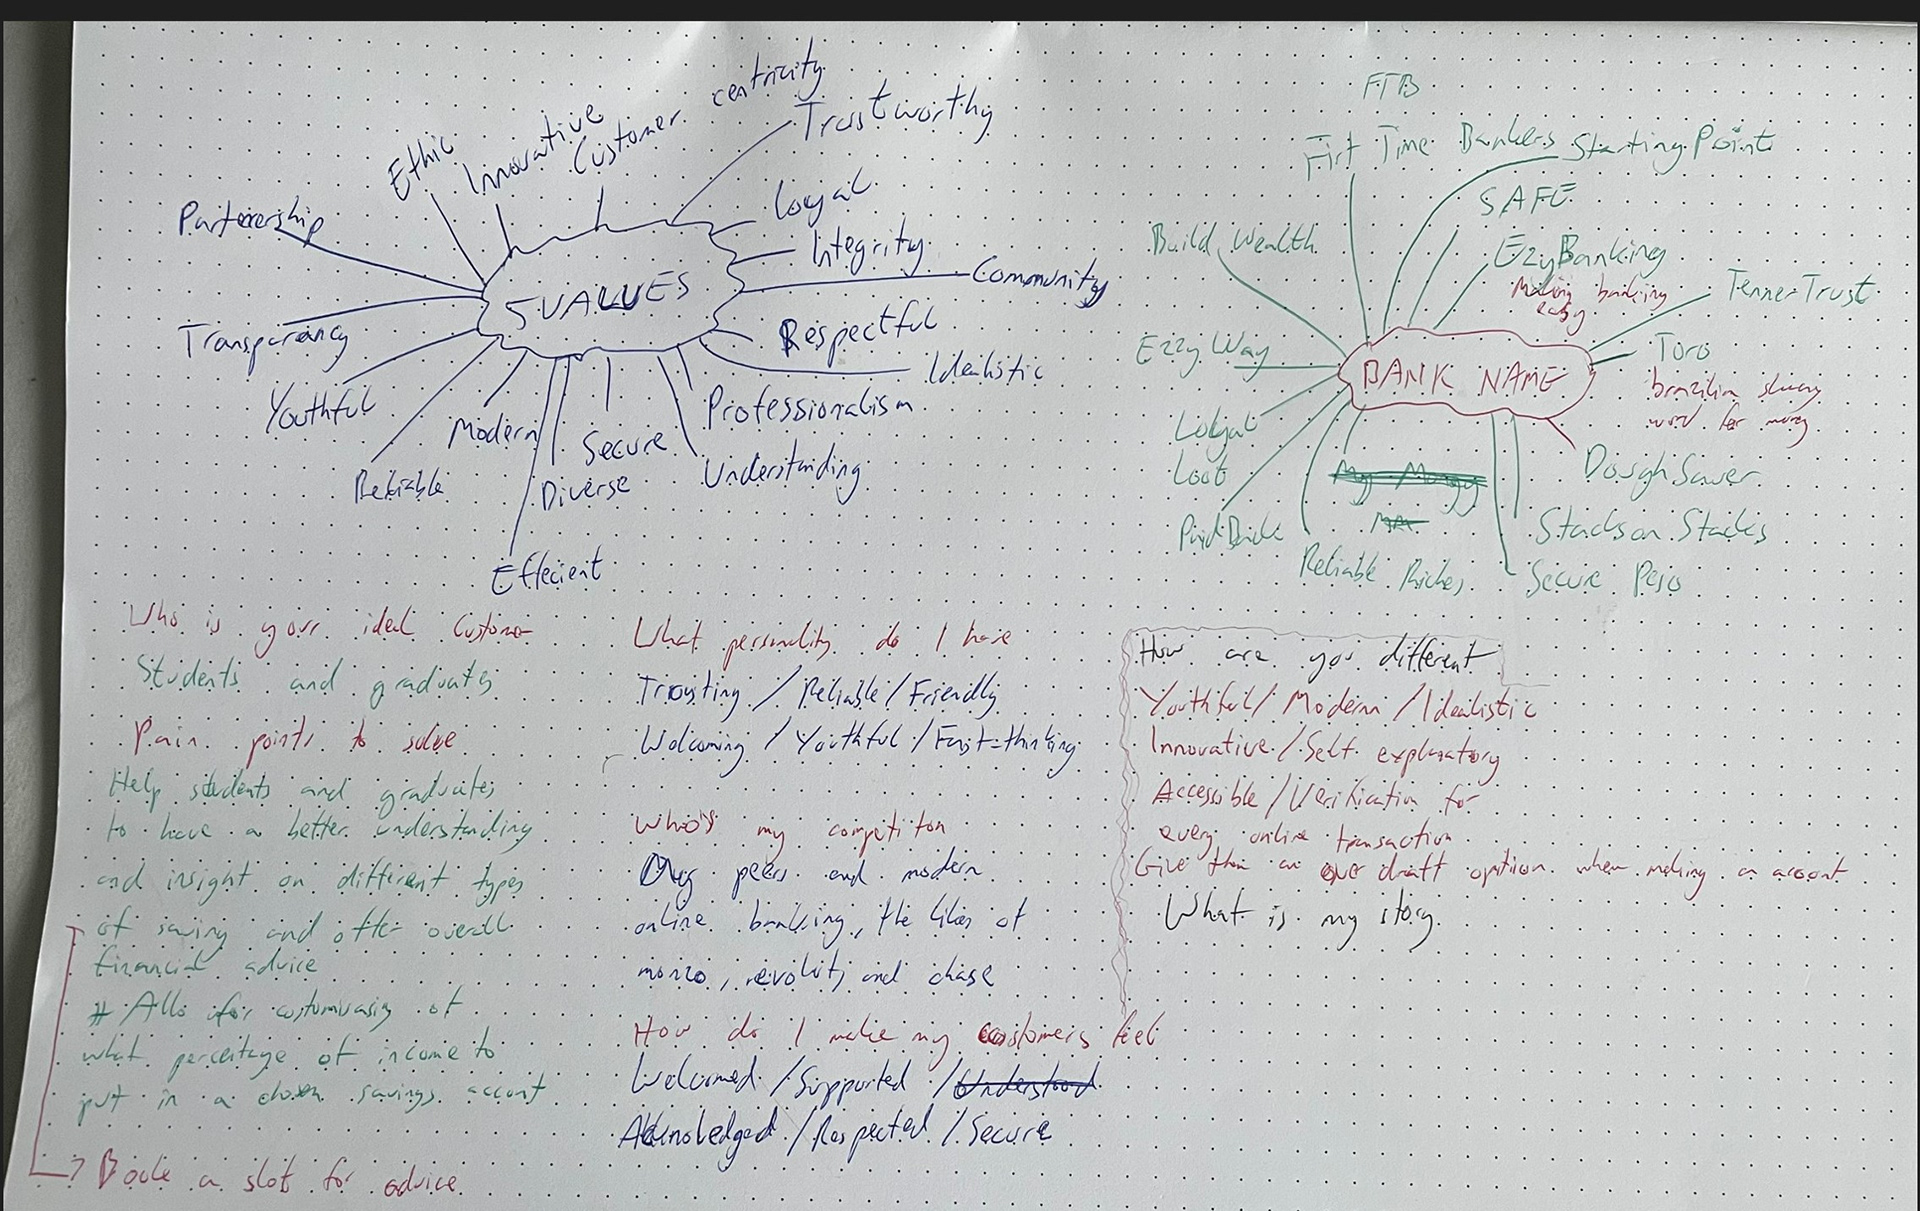 Ethic
Innovative
Customer centricity
Trustworthy
Partenership
Loyal
Integrity
Community
5 VALUES
Transparancy
Respectful
Idealistic
Youthful
Modern
Secure
Professionalism
Reliable
Diverse
Understanding
Effecient
FTB
First Time Bankers
Starting Point
SAFE
Build Wealth
EzyBanking
Making banking
easy
Tenner Trust
Ezzy Way
BANK NAME
Toro
brazilian slang
word for money
Loyal
Loot
My Money
Dough Saver
Paid Back
Stacks on Stacks
Reliable Riches
Secure Peso
Who is your ideal customer
Students and graduates
Pain points to solve
Help students and graduates
to have a better understanding
and insight on different types
of saving and offer overall
financial advice
# Allo for customising of
what percentage of income to
put in a chosen savings account
Book a slot for advice
What personality do I have
Trusting / Reliable / Friendly
Welcoming / Youthful / Fast-thinking
Who's my competiton
My peers and modern
online banking, the likes of
monzo, revolut, and chase
How do I make my customers feel
Welcomed / Supported / Understood
Acknoledged / Respected / Secure
How are you different
Youthful / Modern / Idealistic
Innovative / Self explanatory
Accessible / Verification for
every online transaction
Give them an over draft option when making a account
What is my story